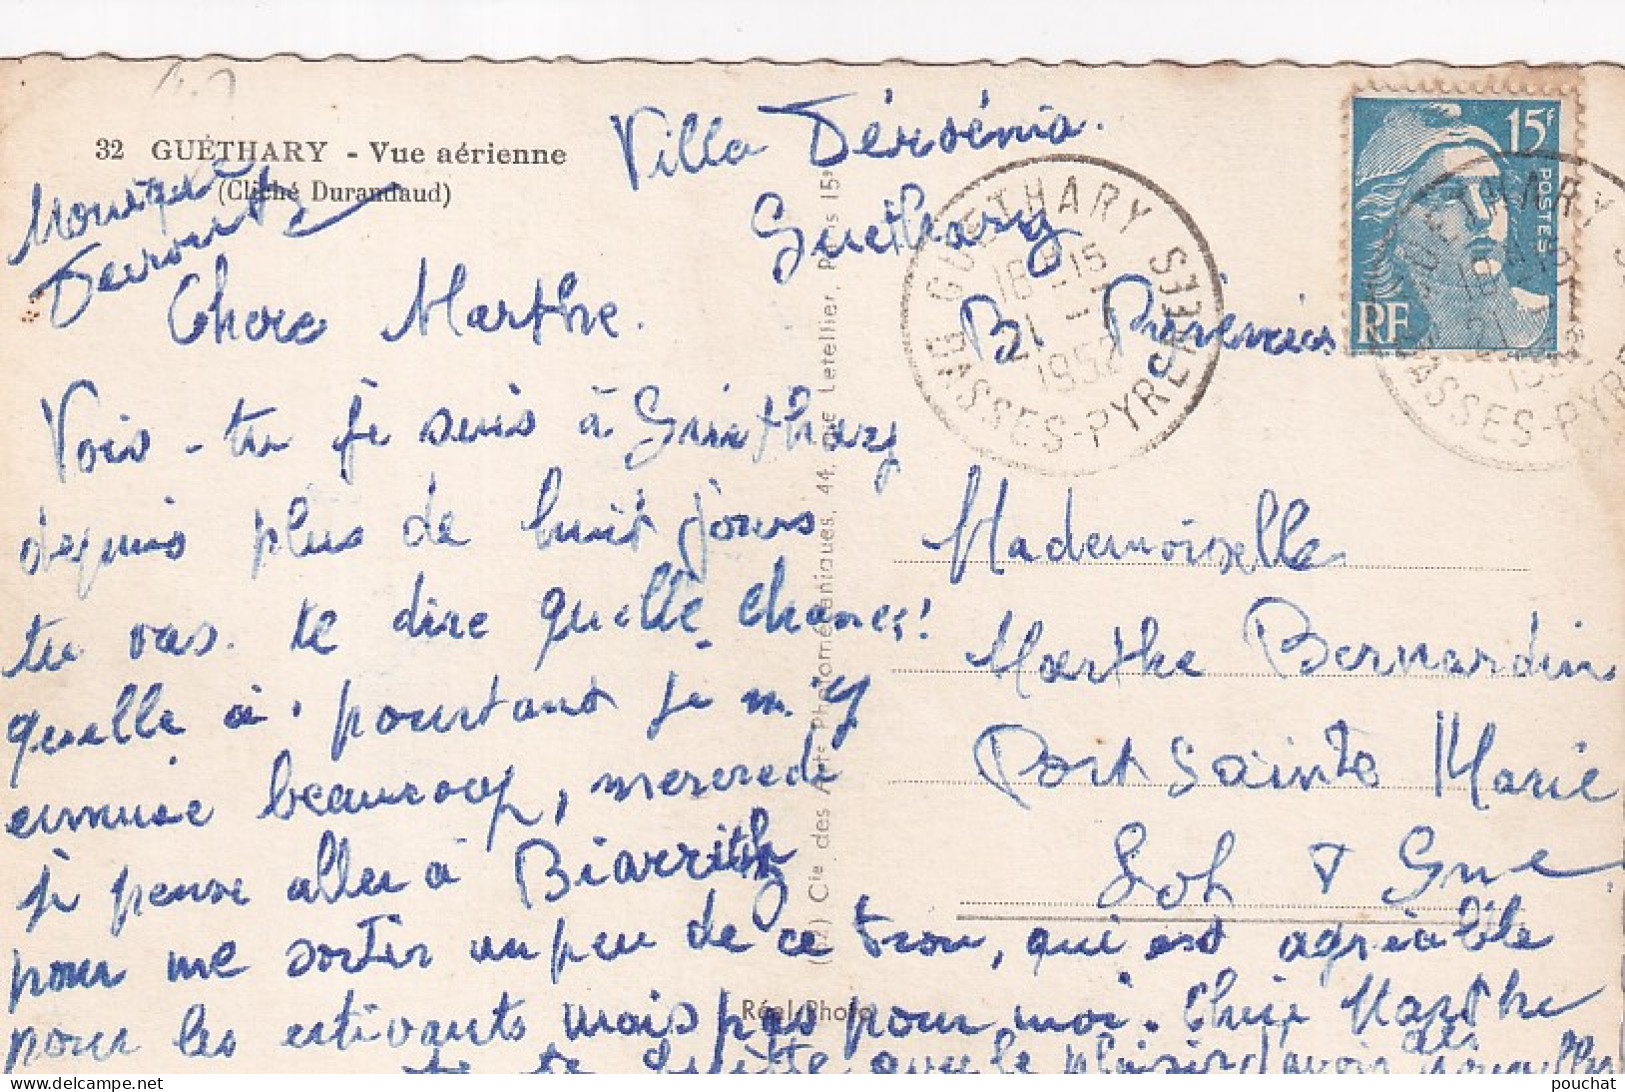 32 GUÉTHARY - Vue aérienne
(Cliché Durandaud)
Villa
Guethary
B. Pyrénées
15f
POSTES
RF
GUETHARY
18H15
21 -
1952
BASSES-PYRENEES
Chere Marthe.
Vois-tu je suis à Guethary
depuis plus de huit jours
tu vas te dire quelle chance!
quelle a. pourtant je m'y
ennuie beaucoup, mercredi
je pense aller à Biarritz
pour me sortir un peu de ce trou, qui est agréable
pour les estivants mais pas pour moi. Chère Marthe
je te quitte avec le plaisir d'avoir de
Mademoiselle
Marthe Bernardin
Port Sainte Marie
Lot & Gne
Cie des Arts Photomécaniques, 44, rue Letellier, Paris 15e
Réel-Photo
delcampe.net
pouchat